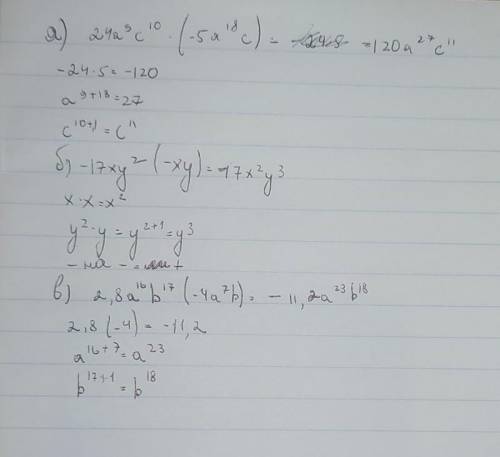 а) 24a⁹c¹⁰ · (-5a¹⁸c) = = 120a²⁷c¹¹
-24 · 5 = -120
a⁹⁺¹⁸ = 27
c¹⁰⁺¹ = c¹¹
б) -17xy² (-xy) = 17x²y³
x · x = x²
y² · y = y²⁺¹ = y³
- на - = +
в) 2,8a¹⁶b¹⁷ (-4a⁷b) = - 11,2a²³b¹⁸
2,8 (-4) = -11,2
a¹⁶⁺⁷ = a²³
b¹⁷⁺¹ = b¹⁸